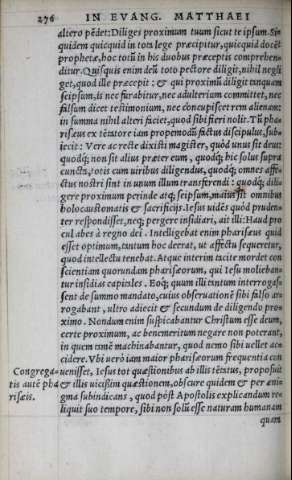 276 IN EVANG. MATTHAEI
altero pẽdet: Diliges proximum tuum sicut te ipsum. Si-
quidem quicquid in tota lege præcipitur, quicquid docẽt
prophetæ, hoc totũ in his duobus præceptis comprehen-
ditur. Quisquis enim deũ toto pectore diligit, nihil negli
get, quod ille præcepit: & qui proximũ diligit tanquam
seipsum, is nec furabitur, nec adulterium committet, nec
falsum dicet testimonium, nec concupiscet rem alienam:
in summa nihil alteri faciet, quod sibi fieri nolit. Tũ pha
risæus ex tẽtatore iam propemodũ factus discipulus, sub-
iecit: Vere ac recte dixisti magister, quòd unus sit deus:
quodq́; non sit alius præter eum, quodq́; hic solus supra
cuncta, totis cum uiribus diligendus, quodq́; omnes affe-
ctus nostri sint in unum illum transferendi: quodq́; dili-
gere proximum perinde atq; seipsum, maius sit omnibus
holocaustomatis & sacrificijs. Iesus uidẽs quòd pruden-
ter respondisset, neq; pergere insidiari, ait illi: Haud pro
cul abes à regno dei. Intelligebat enim pharisæus quid
esset optimum, tantum hoc deerat, ut affectu sequeretur,
quod intellectu tenebat. Atque interim tacite mordet con
scientiam quorundam pharisæorum, qui Iesu molieban-
tur insidias capitales. Eoq́; quum illi tantum interroga-
sent de summo mandato, cuius obseruationẽ sibi falso ar-
rogabant, ultro adiecit & secundum de diligendo pro-
ximo. Nondum enim suspicabantur Christum esse deum,
certe proximum, ac benemeritum negare non poterant,
in quem tamẽ machinabantur, quod nemo sibi uellet ac-
cidere. Vbi uerò iam maior pharisæorum frequentia con
Congrega- uenisset, Iesus tot quæstionibus ab illis tẽtatus, proposuit
tis autẽ pha & illis uicissim quæstionem, obscure quidem & per æni-
risæis. gma subindicans, quod póst Apostolis explicandum re-
liquit suo tempore, sibi non solũ esse naturam humanam
quam